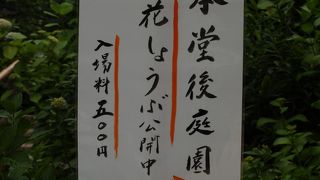 本堂後庭園
花しょうぶ公開中
入場料五〇〇円